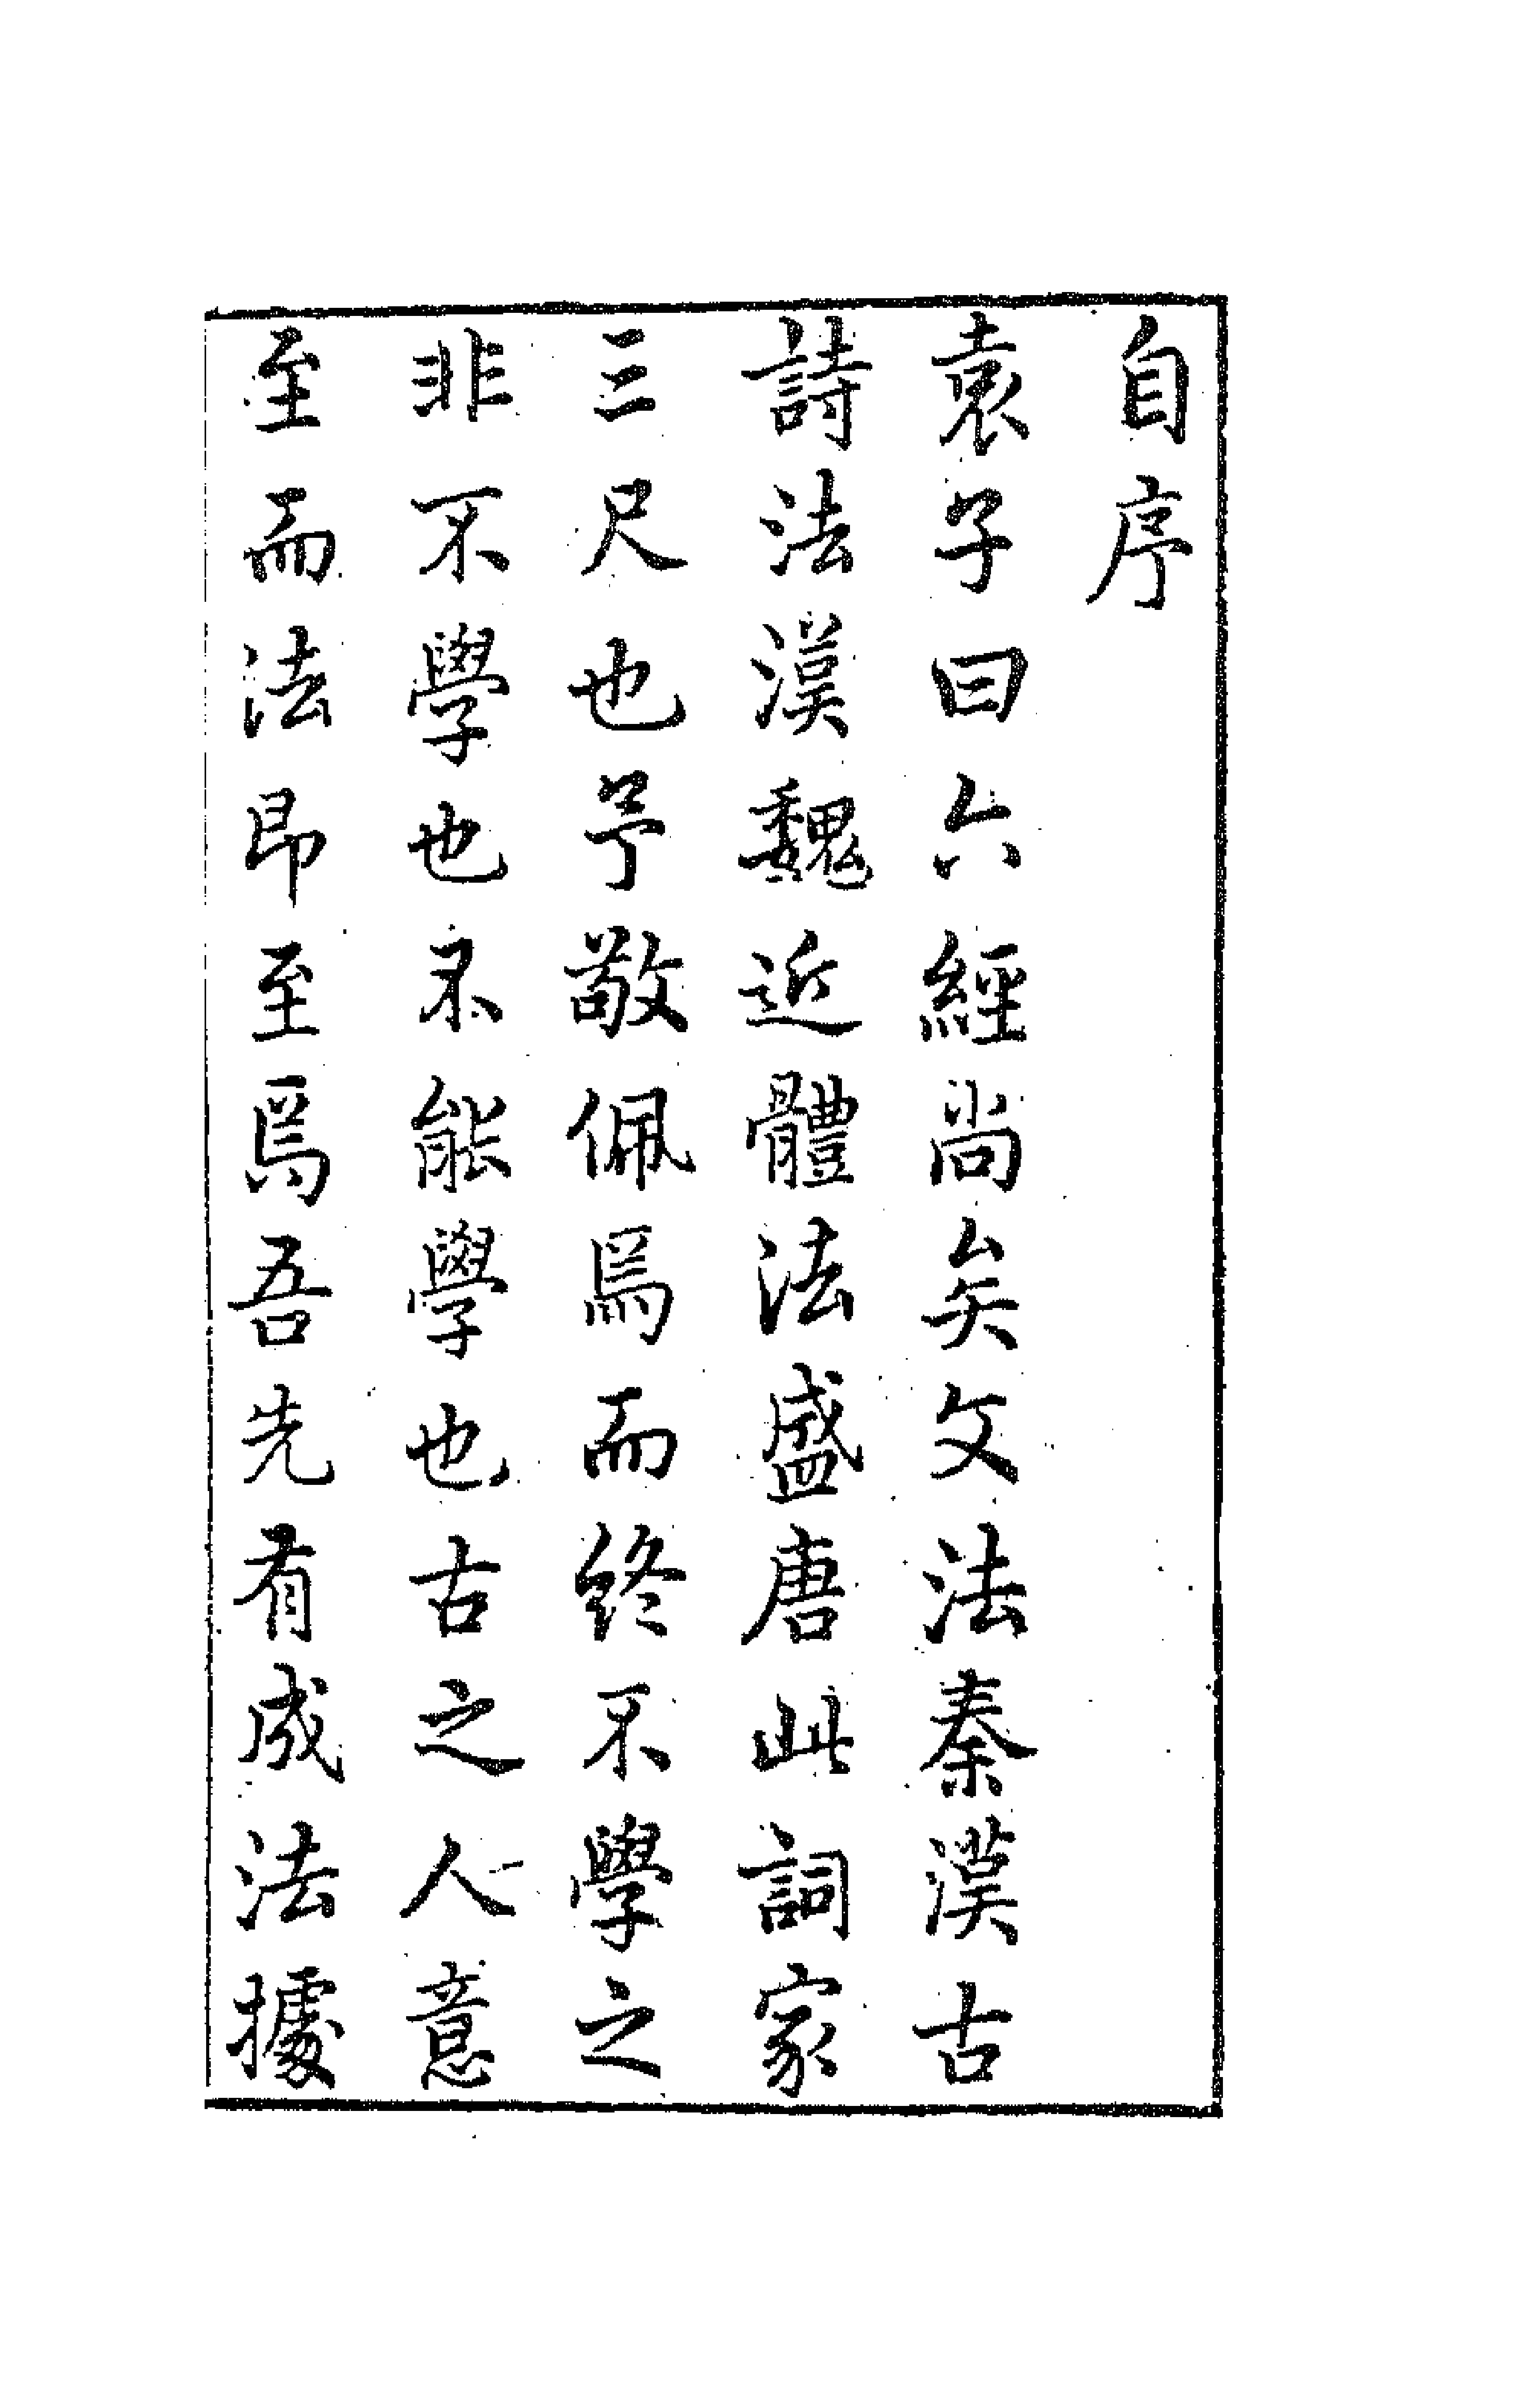 自序
袁子曰六經尚矣文法秦漢古
詩法漢魏近體法盛唐此詞家
三尺也予敬佩焉而終不學之
非不學也不能學也古之人意
至而法即至焉吾先有成法據